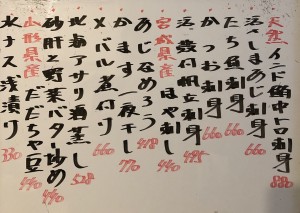 天然インド鮪中トロ刺身 880
活〆まあじ刺身 660
たち魚刺身 660
かつお刺身 660
活〆帆立刺身 495
宮城県産ほや刺し 440
あじなめろう 418
かます一夜干し 770
メバル煮付け 660
北海アサリ酒蒸し 528
砂肝と野菜バター炒め 440
山形県産だだちゃ豆 440
水ナス浅漬け 330